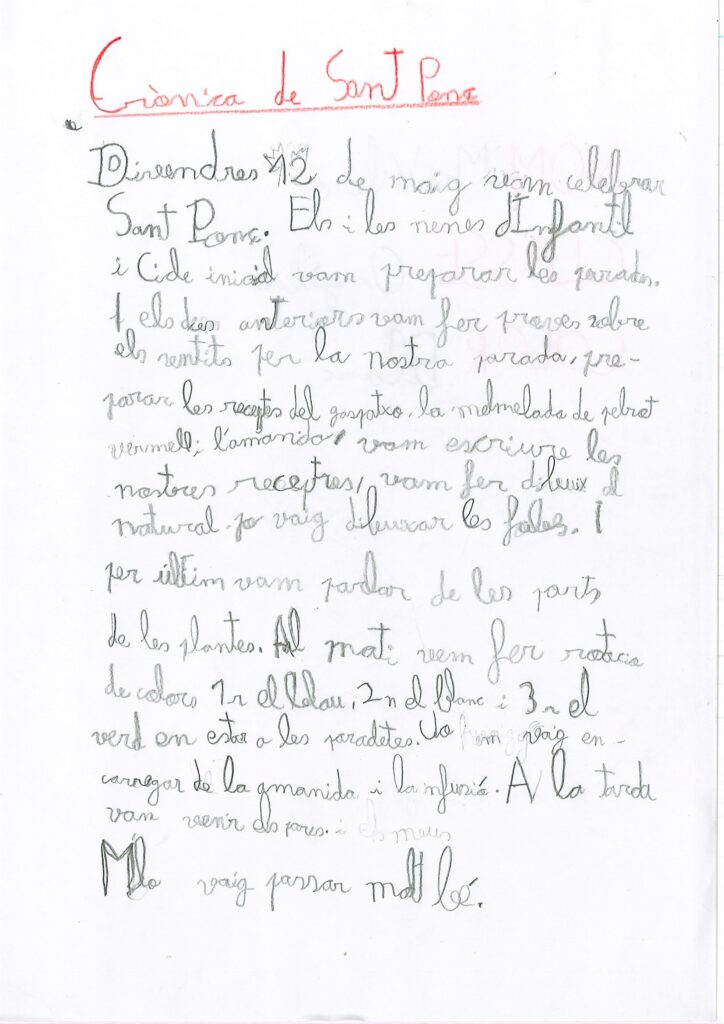 Crònica de Sant Ponç
Divendres 12 de maig vam celebrar
Sant Ponç. Els i les nenes d'Infantil
i Cicle inicial vam preparar les parades.
I els dies anteriors vam fer proves sobre
els sentits per la nostra parada, pre-
parar les receptes del gaspatxo, la melmelada de pebrot
vermell; l'amanida, vam escriure les
nostres receptres, vam fer dibuix al
natural. jo vaig dibuixar les fabes. I
per últim vam parlar de les parts
de les plantes. Al mati vem fer rotacio
de colors 1r el blau, 2n el blanc i 3r el
verd en estar a les paradetes. Jo em vaig en-
carregar de la amanida i la infusió. A la tarda
van venir els pares. i els meus
M'lo vaig passar molt bé.